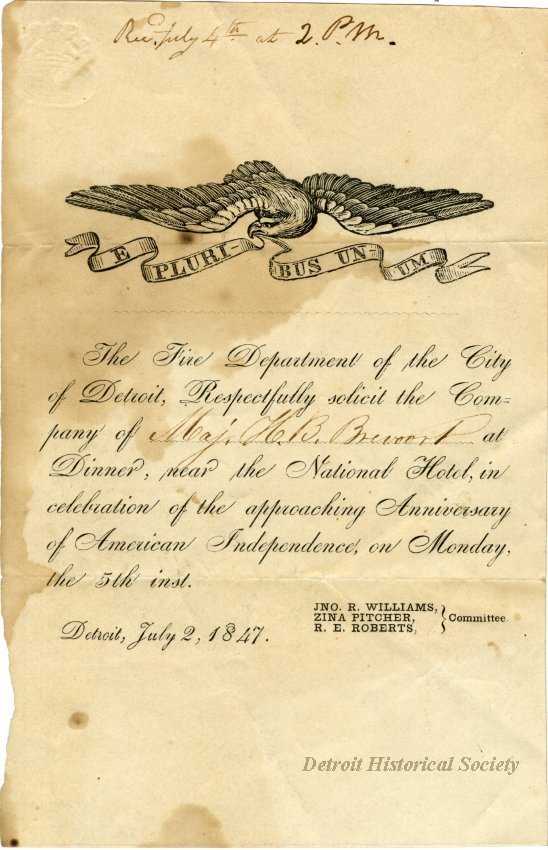 Rec. July 4th at 2. P.M.
E PLURI- BUS UN- UM
The Fire Department of the City
of Detroit, Respectfully solicit the Com=
pany of Maj. H. B. Brevoort at
Dinner, near the National Hotel, in
celebration of the approaching Anniversary
of American Independence, on Monday,
the 5th inst.
JNO. R. WILLIAMS,
ZINA PITCHER,
R. E. ROBERTS,
} Committee
Detroit, July 2, 1847.
Detroit Historical Society